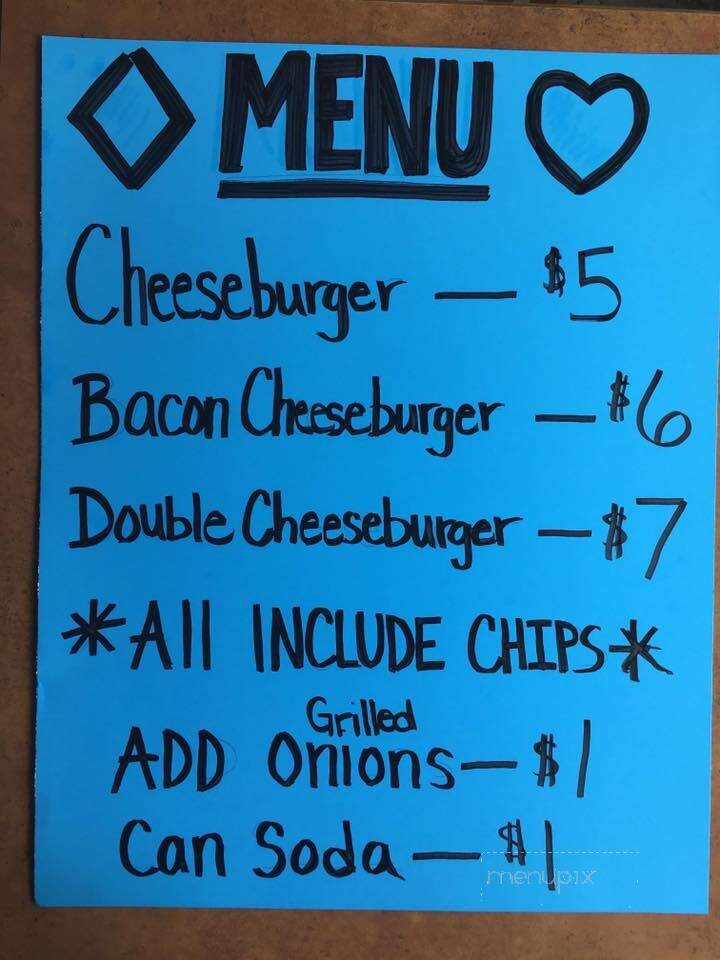 MENU
Cheeseburger — $5
Bacon Cheeseburger — $6
Double Cheeseburger — $7
*All INCLUDE CHIPS*
Grilled
ADD Onions — $1
Can Soda — $1
menupix